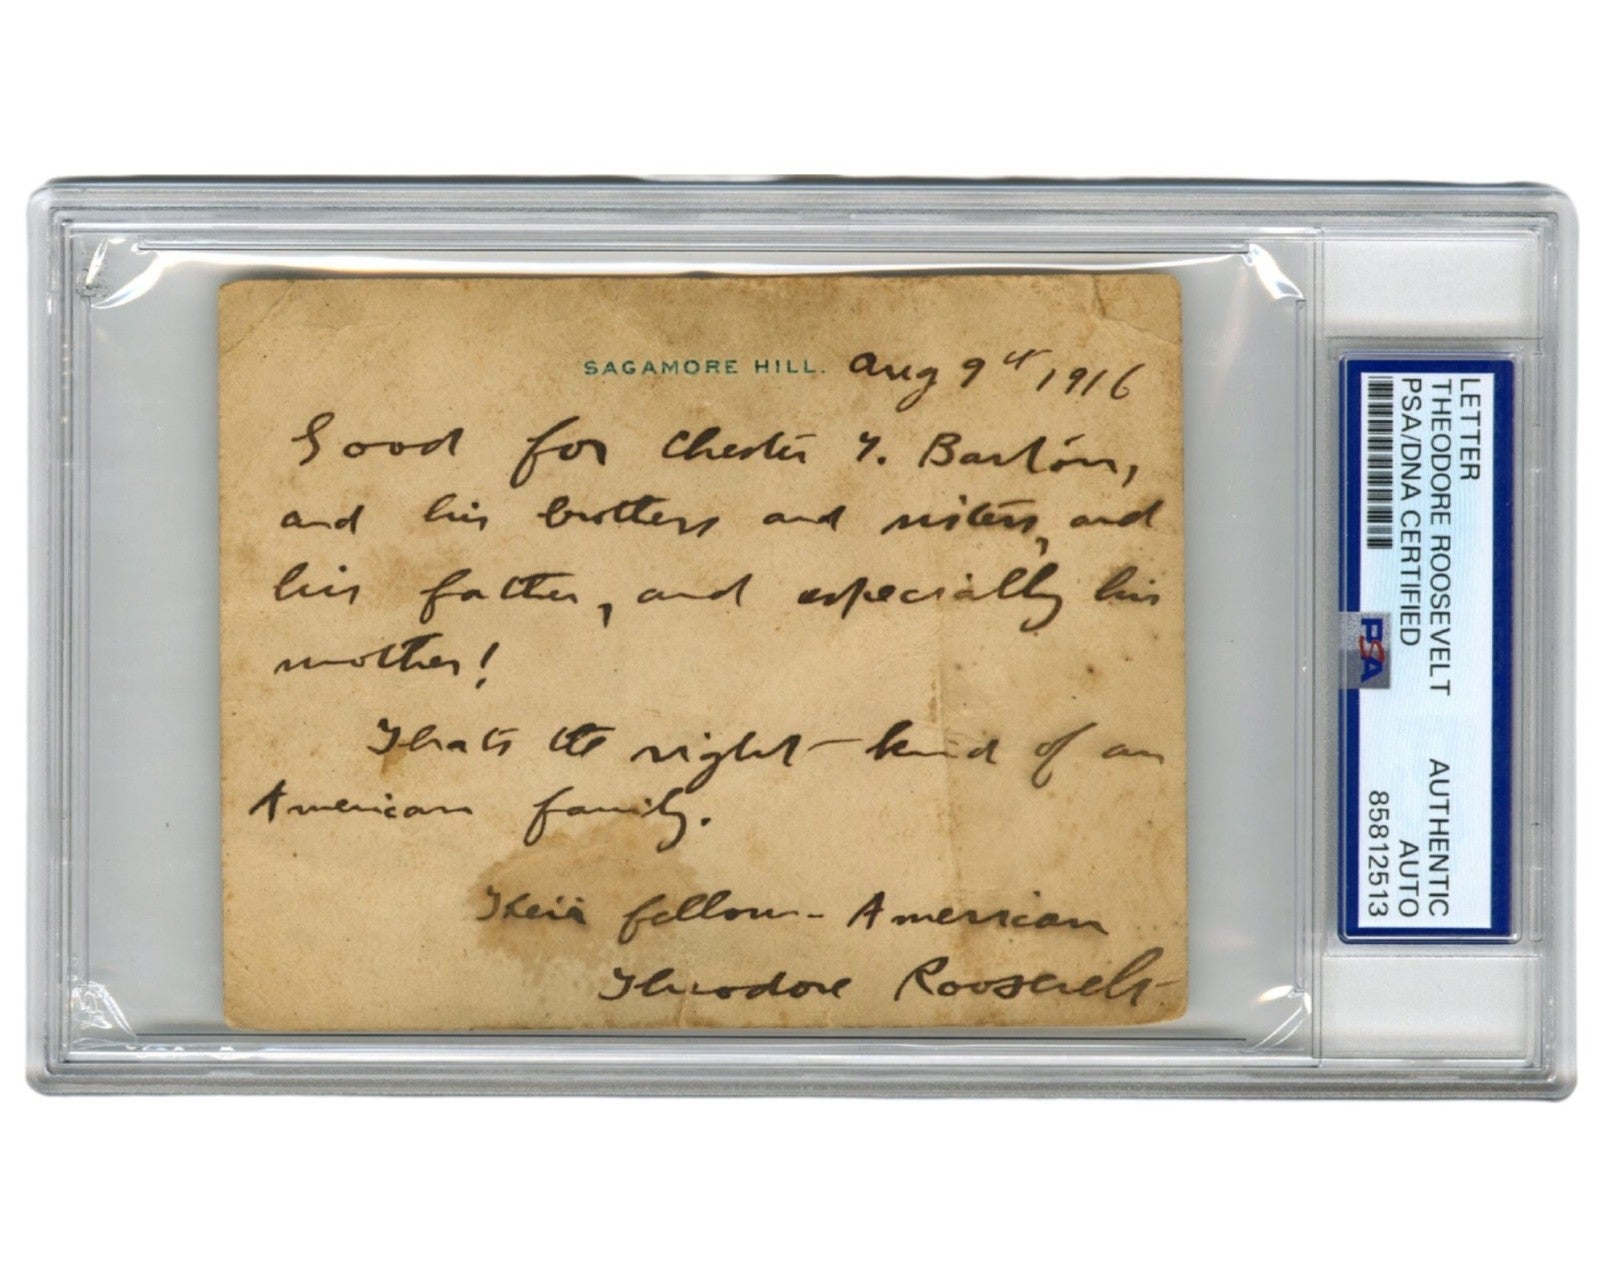 SAGAMORE HILL. Aug 9th, 1916
Good for Chester T. Barton,
and his brothers and sisters, and
his father, and especially his
mother!
Thats the right kind of an
American family.
Their fellow-American
Theodore Roosevelt
LETTER
THEODORE ROOSEVELT AUTHENTIC
PSA/DNA CERTIFIED AUTO
85812513
PSA